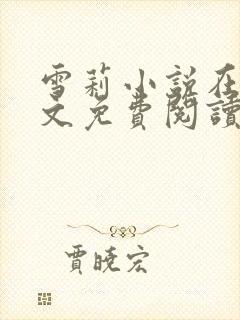 雪莉小說在
文免費閱讀
賈曉宏